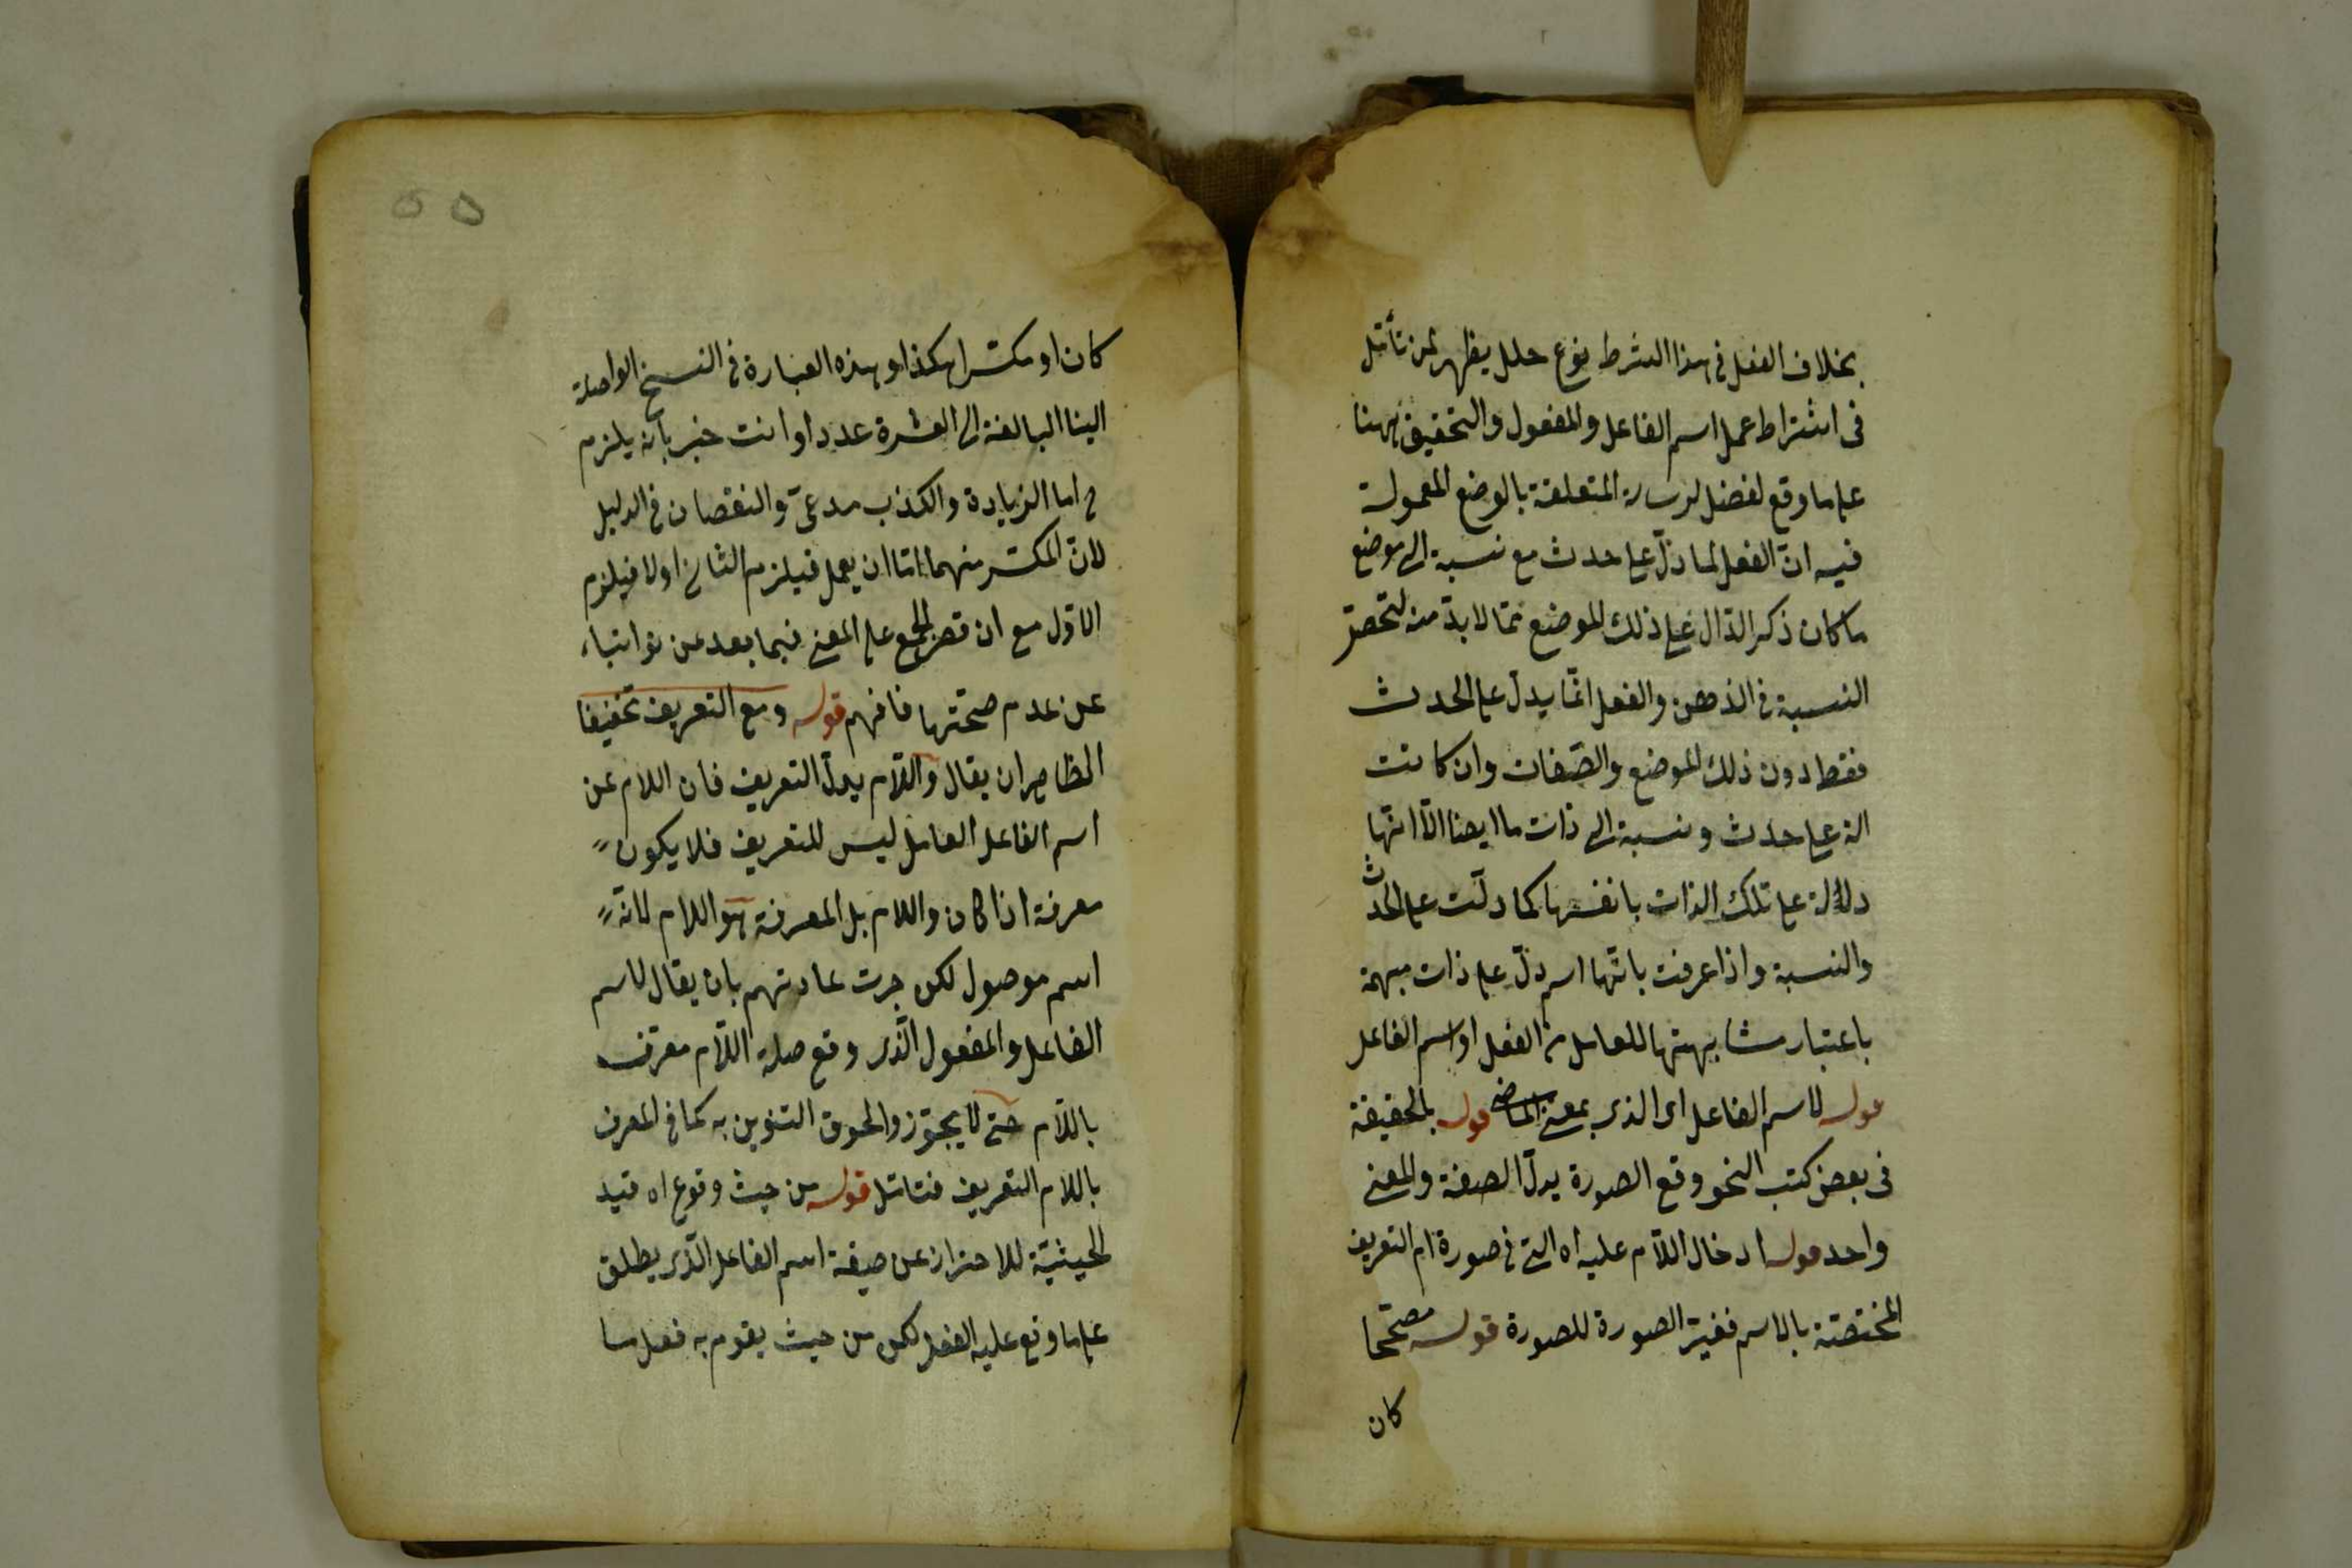 بخلاف الفعل فى هذا الشرط نوع خلل يظهر لمن تأمّل
فى اشتراط عمل اسم الفاعل والمفعول والتحقيق ههنا
على ما وقع لفضل لرسالة المتعلقة بالوضع المعمولة
فيه انّ الفعل لما دلّ على حدث مع نسبة الى موضع
ما كان ذكر الدّال على ذلك الموضع ممّا لا بدّ منه لتحصّل
النسبة فى الذهن والفعل انّما يدلّ على الحدث
فقط دون ذلك الموضع والصّفات وان كانت
الة على حدث ونسبة الى ذات ما ايضا الاّ انّها
دلالة على تلك الذات بانفسها كما دلّت على الحدث
والنسبة واذا عرفت بانّها اسم دلّ على ذات مبهمة
باعتبار مشابهتها للعامل من الفعل او اسم الفاعل
قوله لاسم الفاعل اى الذى بمعنى الماضى قوله بالحقيقة
فى بعض كتب النحو وقع الصورة بدل الصفة والمعنى
واحد قوله ادخال اللّام عليه اه التى فى صورة لام التعريف
المختصّة بالاسم فغيّر الصورة للصورة قوله مصحّحا
كان
٥٥
كان او مكسّرا هكذا وهذه العبارة فى النسخ الواصلة
الينا البالغة الى العشرة عددا وانت خبير بانه يلزم
ح اما الزيادة والكذب مدعىّ والنقصان فى الدليل
لانّ المكسّر منهما امّا ان يعمل فيلزم الثانى او لا فيلزم
الاوّل مع ان قصر الجمع على المعنى فيما بعد عن نو انباء
عن عدم صحّتها فافهم قوله ومع التعريف تخفيفا
الظاهر ان يقال واللّام بدل التعريف فان اللام عن
اسم الفاعل العامل ليس للتعريف فلا يكون
معرفة اذا كان واللام بل المعرفة هو اللام لانّه
اسم موصول لكن جرت عادتهم بان يقال لاسم
الفاعل والمفعول الّذى وقع صلة اللّام معرّف
باللّام حتى لا يجوّزوا لحوق التنوين به كما فى المعرف
باللام التعريف فتامّل قوله من حيث وقوع اه قيد
الحيثيّة للاحتراز عن صيغة اسم الفاعل الّذى يطلق
على ما وقع عليه الفعل لكن من حيث يقوم به فعل ما